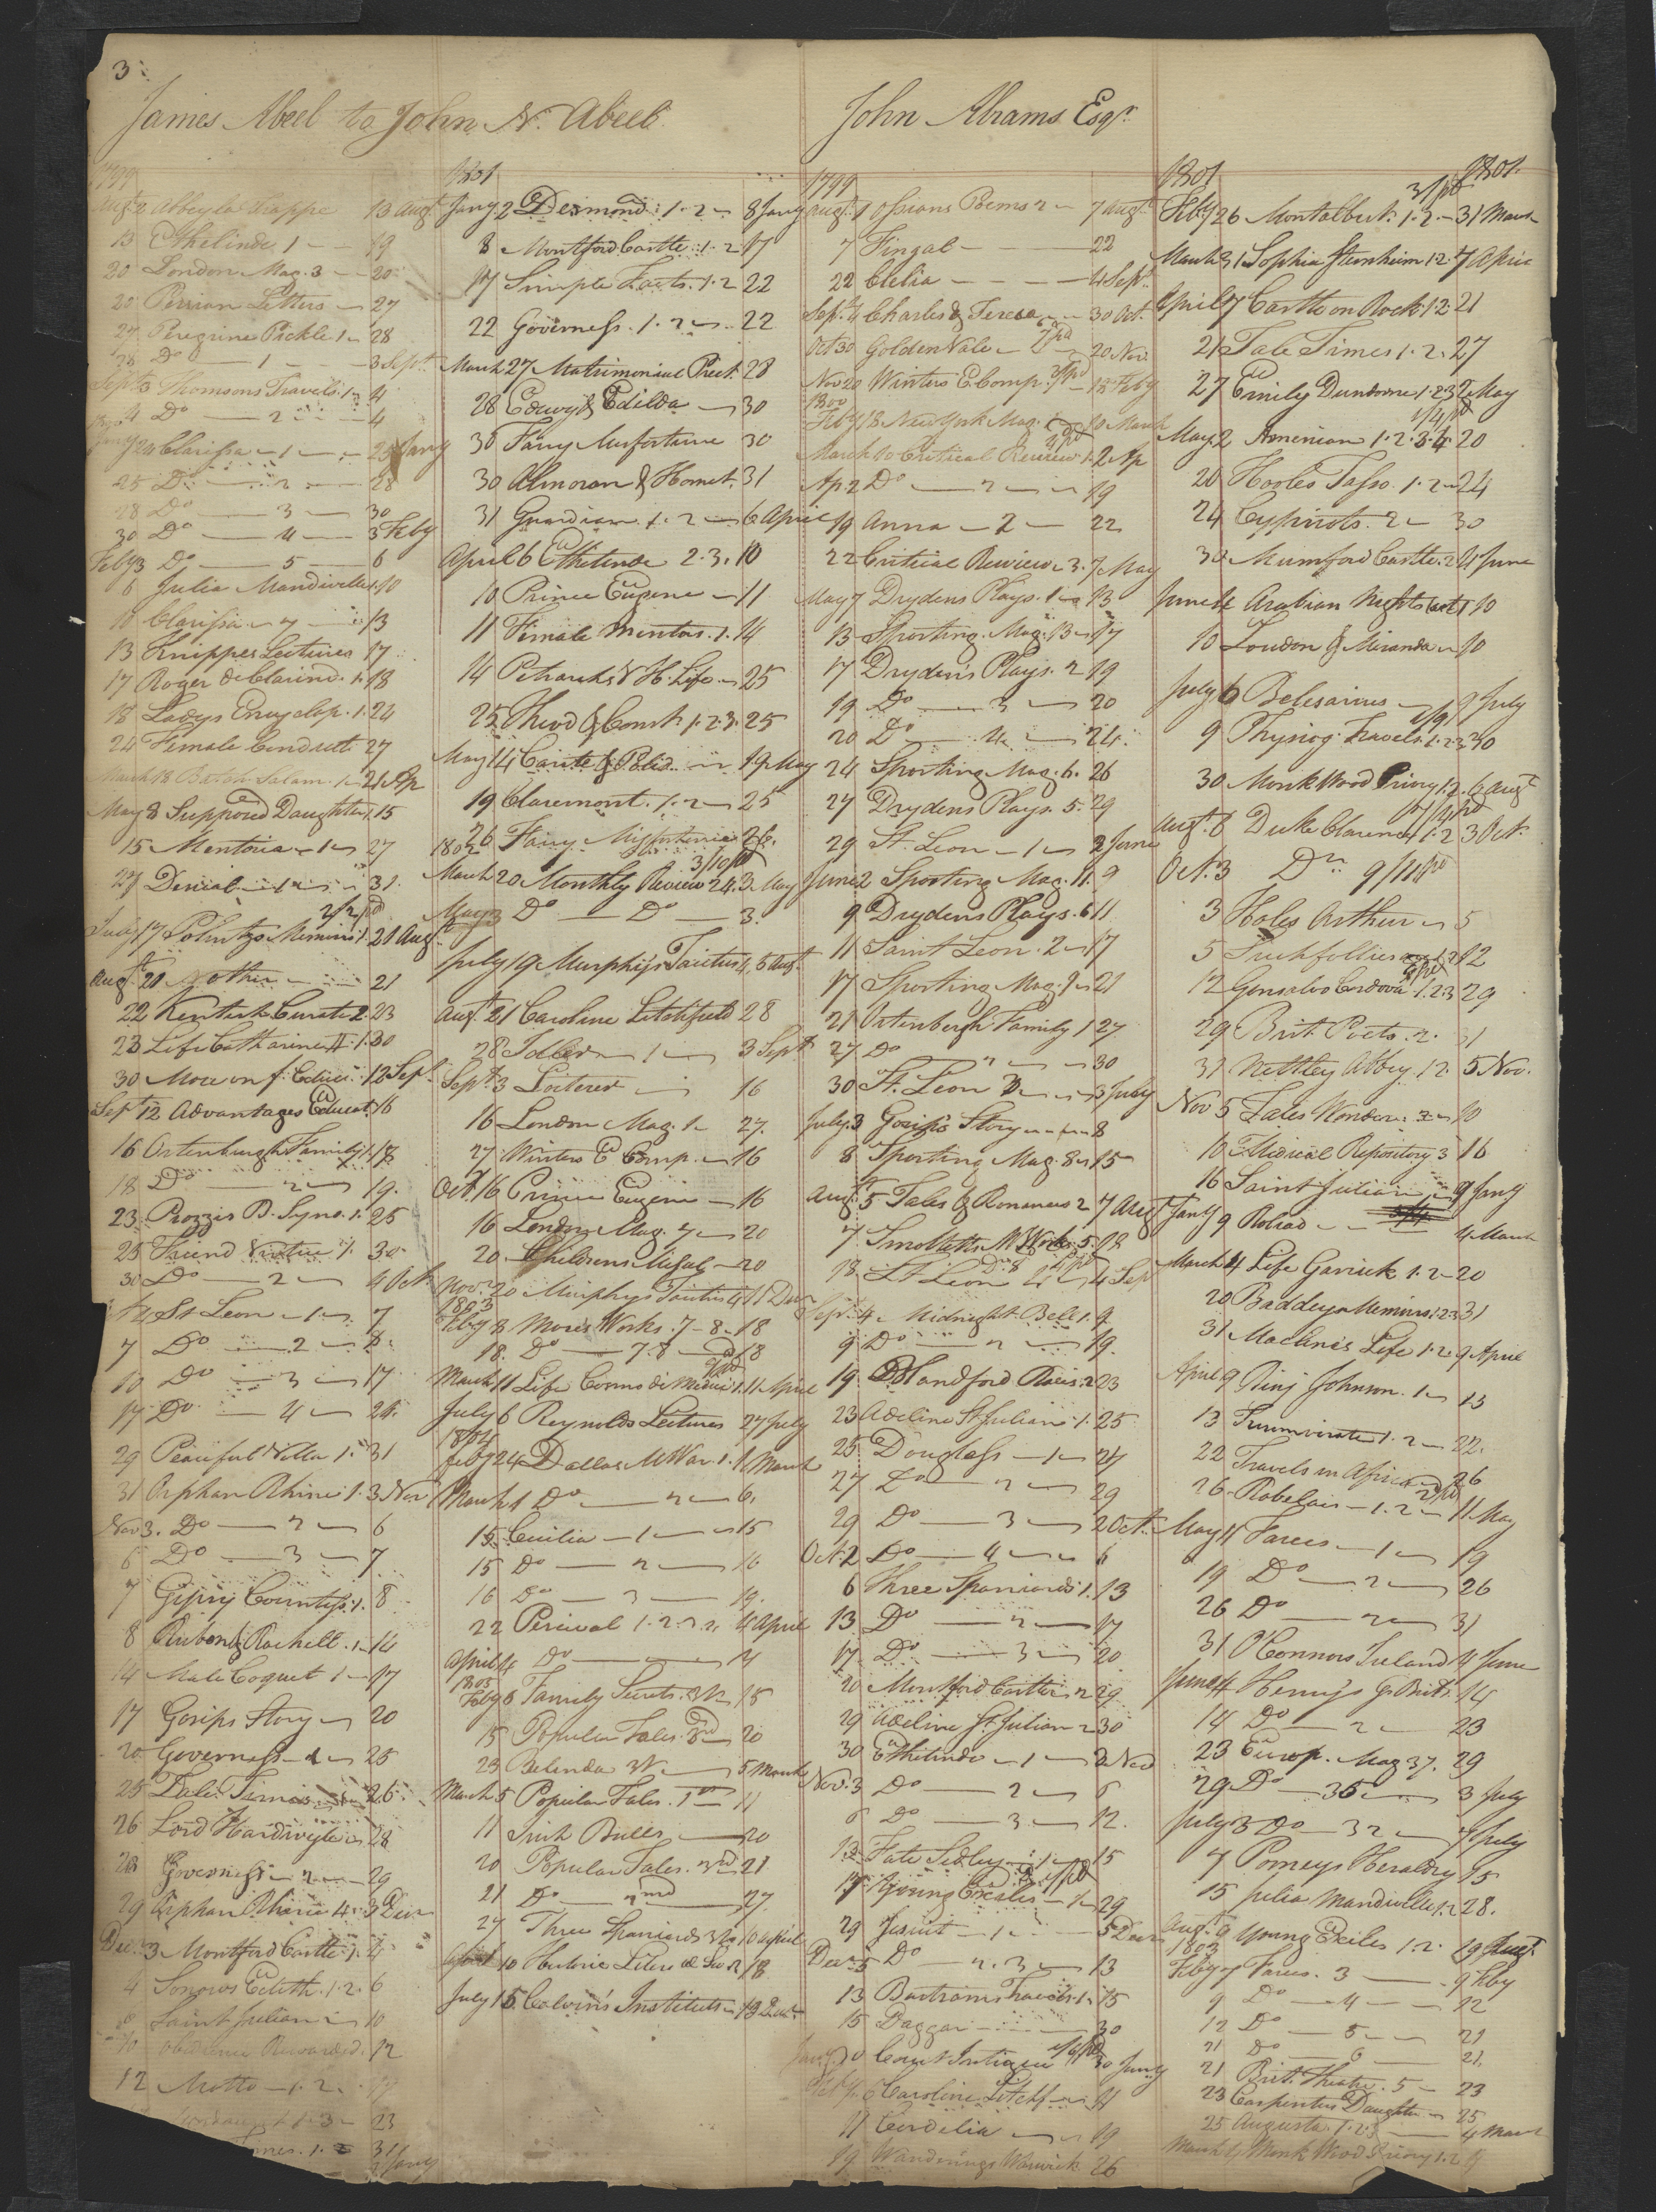 3
James Abeel to John N. Abeel
1799
Augt 2 Abbey la Trappe 13 Augt
13 Ethelinde 1 19
20 London Mag. 3 20
22 Persian Letters 27
27 Peregrine Pickle 1 28
28 Do 1 3 Sept
Sept 3 Thomsons Travels 1 4
4 Do 2 4
Jany 20 Clarissa 1 25 Jany
25 Do 2 28
28 Do 3 30
30 Do 4 3 Feby
Feby 3 Do 5 6
6 Julia Mandiville 1. 10
10 Clarissa 7 13
13 Knippes Lectures 17
17 Roger de Clarind. 1. 18
18 Ladys Encyclop. 1. 24
24 Female Conduct 27
March 18 Salam. 1 21 Ap
May 8 Supposed Daughter 1. 15
15 Mentoria 1 27
27 Denial 1 31.
2/2 pd
July 17 Polnitzs Memoirs 1. 21 Augt
Augt 21 Mother 21
22 Kentish Curate 2. 23
23 Life Catharine II. 1. 30
30 More on f. Educ. 12 Sept
Sept 12 Advantages Educat. 16
16 Ortenburgh Family 1. 18
18 Do 2 19.
23 Piozzis B. Syno. 1. 25
25 Friend Virtue 1. 30
30 Do 2 4 Oct
4 St Leon 1 7
7 Do 2 8.
10 Do 3 17
17 Do 4 24.
29 Peaceful Villa 1. 31
31 Orphan Rhine 1. 3 Nov
Nov 3. Do 2 6
6 Do 3 7
7 Gipsy Countess. 1. 8
8 Ruben & Rachell. 1. 14
14 Male Coquet 1 17
17 Gosips Story 20
20 Governess 1 25
25 Tale Times 26.
26 Lord Hardivyle 28
28 Governess 2 29
29 Orphan Rhine 4. 3 Decr
Dec. 3 Montford Castle. 1. 4
4 Sorrows Edith. 1. 2. 6
6 Saint Julian 10
10 Obedience Rewarded. 12
12 Motto 1. 2. 17
1. 3 23
Times. 1. 2 31
Jany
1801
Jany 2 Desmond. 1. 2 8 Jany
8 Montford Castle. 1. 2 17
17 Simple Facts. 1. 2 22
22 Governess. 1. 2 22
March 27 Matrimonial Prect. 28
28 Edwy & Edilda 30
30 Fany Misfortune 30
30 Almoran & Hamet. 31
31 Guardian. 1. 2 6 April
April 6 Ethelinde 2. 3. 10
10 Prince Eugene 11
11 Female Mentor. 1. 14
14 Petrarchs V H. Life 25
25 Theod & Const. 1. 2. 3. 25
May 14 Carite & Polid 19 May
19 Claremont. 1. 2 25
26 Fairy Misfortunes 26.
1802
3/10 pd
March 20 Monthly Review 24. 3 May
May 3 Do Do 3.
July 19 Murphys Tacitus 4. 5 Augt
Augt 21 Caroline Litchfield 28
28 Idler 1 3 Sept
Sept 3 Loiterer 16
16 London Mag. 1 27.
27 Winters E Comp. 16
Oct. 16 Prince Eugene 16
16 London Mag. 7 20
20 Childrens Misfal 20
Nov. 20 Murphys Tacitus 4 11 Decr
1803
Feby 8 Mores Works. 7-8. 18
18. Do 7. 8 18
March 11 Life Cosmo di Medici 1. 11 April
July 6 Reynolds Lectures 27 July
1804
Feby 24 Dallas M War. 1. 1 March
March 1 Do 2 6.
15 Cecilia 1 15
15 Do 2 16
16 Do 3 19.
22 Percival 1. 2. 3. 4. 4 April
April 4 Do 14
1805
Feby 6 Family Secrets. 15
15 Popular Tales. 20
23 Belinda 5 March
March 5 Popular Tales. 1st 11
11 Irish Bulls 20
20 Popular Tales. 3rd 21
21 Do 2nd 27.
27 Three Spaniards 10 April
April 10 18
July 15 Calvin's Institutes 19 Decr
John Abrams Esqr.
1799
Augt 1 Ossians Poems 2 7 Augt
7 Fingal 22
22 Clelia 4 Sept.
Sept. 4 Charles & Teresa 30 Oct.
Oct 30 Golden Vale 20 Nov.
Nov 20 Winters E Comp. 18 Feby
1800
Feby 18 New York Mag. 10 March
March 10 Critical Review 1. 2 Ap
Ap 2 Do 2 19
19 Anna 2 22
22 Critical Review 3. 7 May
May 7 Drydens Plays. 1 13
13 Sporting Mag. 13 17
17 Dryden's Plays. 2 19
19 Do 3 20
20 Do 4 24.
24 Sporting Mag. 6. 26
27 Drydens Plays. 5. 29
29 St. Leon 1 2 June
June 2 Sporting Mag. 11. 9
9 Drydens Plays. 6 11
11 Saint Leon. 2 17
17 Sporting Mag. 9 21
21 Ortenbergh Family 1 27
27 Do 2 30
30 St. Leon 3 3 July
July 3 Gosip's Story 8
8 Sporting Mag. 8 15
Augt 5 Tales & Romances 2 7 Augt
7 Smolletts M Works. 5. 18
18. St Leon 4 4 Sep
Sept. 4 Midnight Bell 1. 9
9 Do 2 19.
19 Handford Races. 2 23
23 Adeline St Julian. 1. 25
25 Douglass 1 27
27 Do 2 29
29 Do 3 2 Oct.
Oct. 2 Do 4 6
6 Three Spaniards 1. 13
13 Do 2 17
17 Do 3 20
20 Montford Castle 2 29
29 Adeline St. Julian 2 30
30 Ethelinde 1 3 Nov
Nov. 3 Do 2 6
6 Do 3 12.
12 Fate Sedley 1 15
17 Young Exiles 1. 29
29 Jesuit 1 5 Decr
Dec. 5 Do 2. 3 13
13 Bartrams Travels. 1. 15
15 Daggar 30
Jany 30 Court Intrigue 30 Jany
Feby. 6 Caroline Litchf 11
11 Cordelia 19
19 Wanderings Warwick 26
1801 1801
3/ pd
Feby 26 Montalbert. 1. 2 31 March
March 31 Sophia Sternheim 1. 2. 7 April
April 7 Castle on Rock 1. 2 21
21 Tale Times 1. 2. 27
27 Emily Dundorne 1. 2 3 2 May
May 2 Armenian 1. 2. 3. 4. 20
20 Hooles Tasso. 1. 2 24
24 Cypriots. 2 30
30 Mumford Castle. 2 4 June
June 4 Arabian Nights 1 10
10 Loudon & Miranda 10
July 6 Belesarius 9 July
9 Physiog. Travels. 1. 2. 3 30
30 Monk Wood Priory 1. 2. 6 Augt
Augt 6 Duke Clarence 1. 2 3 Oct.
Oct. 3 Do 9/11 pd
3 Holes Arthur 5
5 Such follies 12
12 Gonsalvo Cordova. 1. 2 3 29
29 Brit. Poets. 2. 31
31 Nettley Abbey 1. 2. 5 Nov.
Nov 5 Tales Wonder. 2 10
10 Medical Repository 3 16
16 Saint Julian 9 Jany
Jany 9 Roliad 4 March
March 4 Life Garrick 1. 2 20
20 Baddeys Memoirs 1. 2. 3 31
31 Maclins Life 1. 2. 9 April
April 9 Binj Johnson. 1 13
13 Triumvirate 1. 2 22.
22 Travels in Africa 26
26 Rabelais 1. 2 11 May
May 11 Farces 1 19
19 Do 2 26
26 Do 2 31
31 O'Connors Ireland 4 June
June 4 Henrys G. Brit. 14
14 Do 2 23
23 Europ. Mag 37. 29
29 Do 36 3 July
July 3 Do 32 7 July
7 Pomeys Heraldry 15
15 Julia Mandiville 1. 2 28.
Augt 9 Young Exiles 1. 2. 19 Augt
1803
Feby 7 Farces. 3 9 Feby
9 Do 4 12
12 Do 5 21
21 Do 6 21.
21 Brit. Theatre. 5 23
23 Carpenters Daughter 25
25 Augusta. 1. 2. 3 4 March
March 4 Monk Wood Priory 1. 2 9